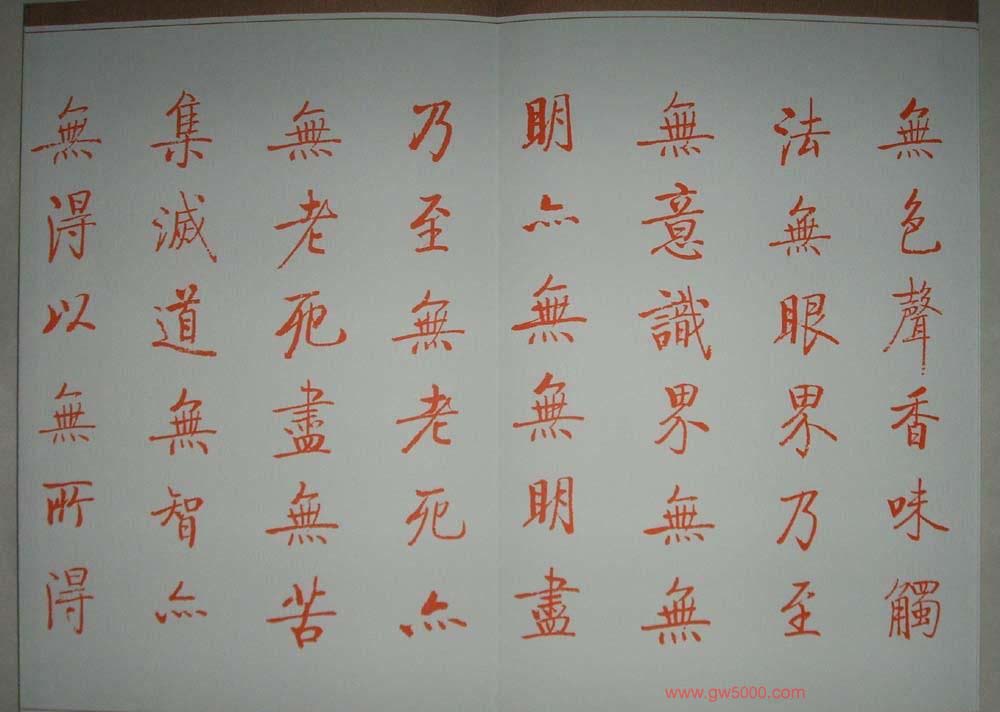 無色聲香味觸
法無眼界乃至
無意識界無無
明亦無無明盡
乃至無老死亦
無老死盡無苦
集滅道無智亦
無得以無所得
www.gw5000.com